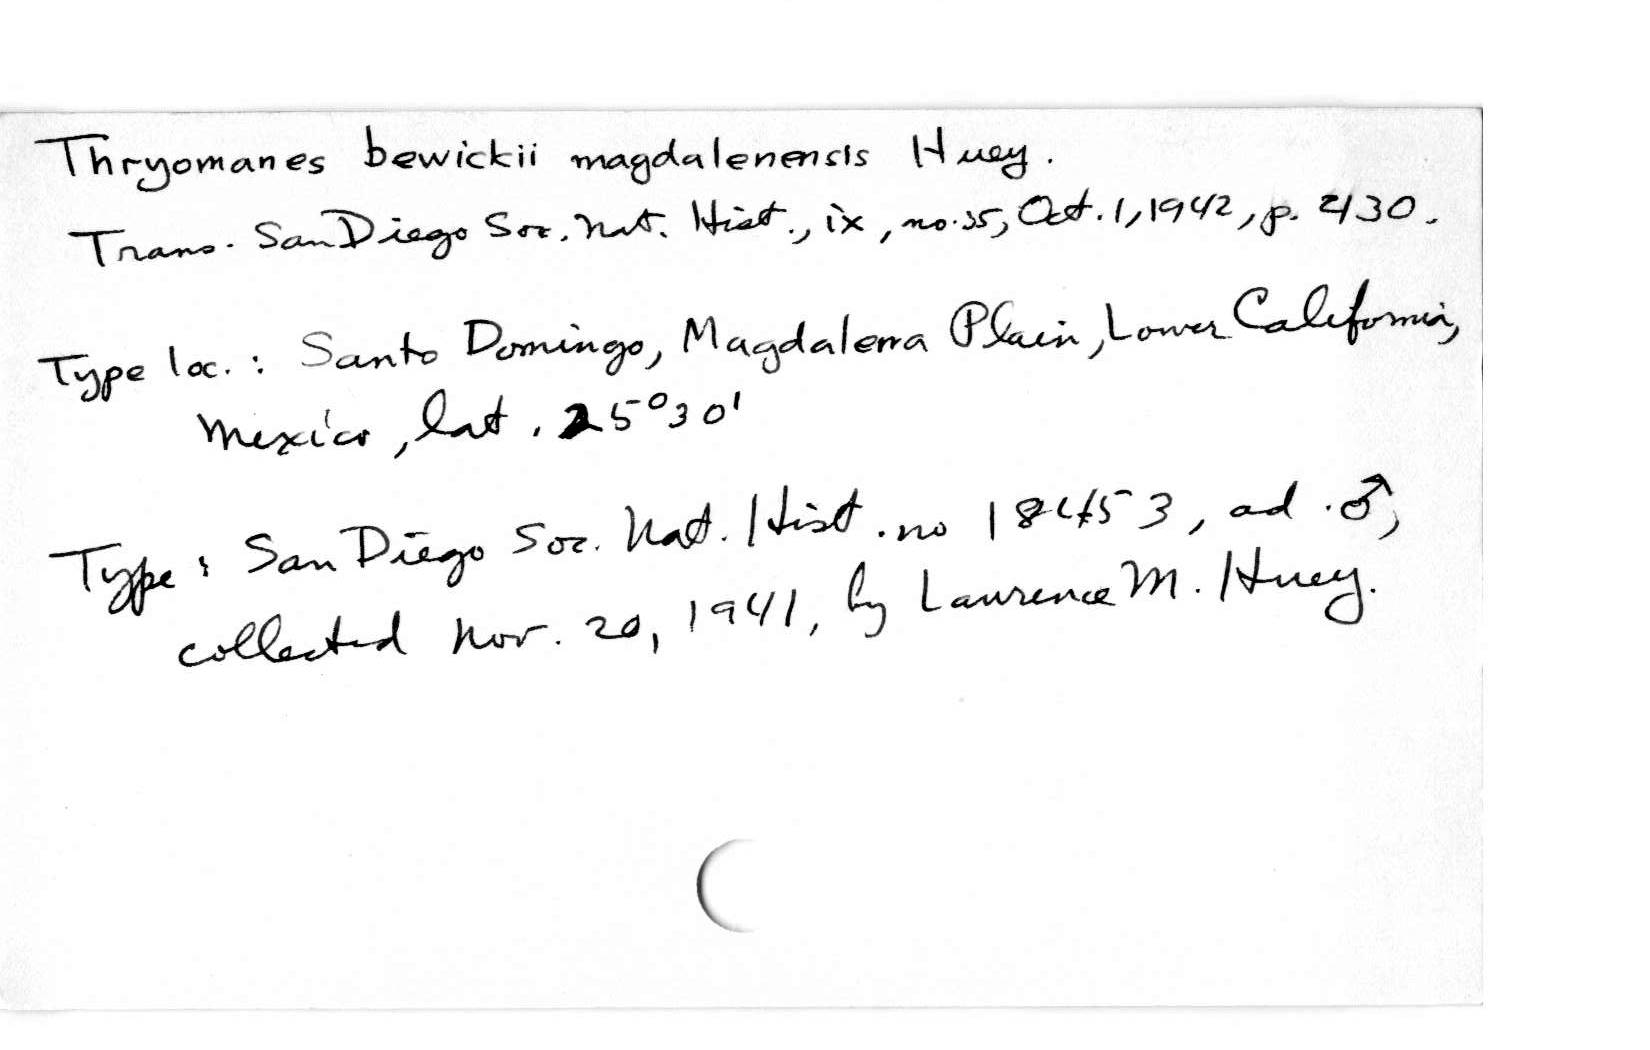 Thryomanes bewickii magdalenensis Huey.
Trans. San Diego Soc. Nat. Hist., ix, no. 35, Oct. 1, 1942, p. 430.
Type loc.: Santo Domingo, Magdalena Plain, Lower California,
Mexico, lat. 25°30'
Type: San Diego Soc. Nat. Hist. no 18453, ad. ♂,
collected Nov. 20, 1941, by Laurence M. Huey.